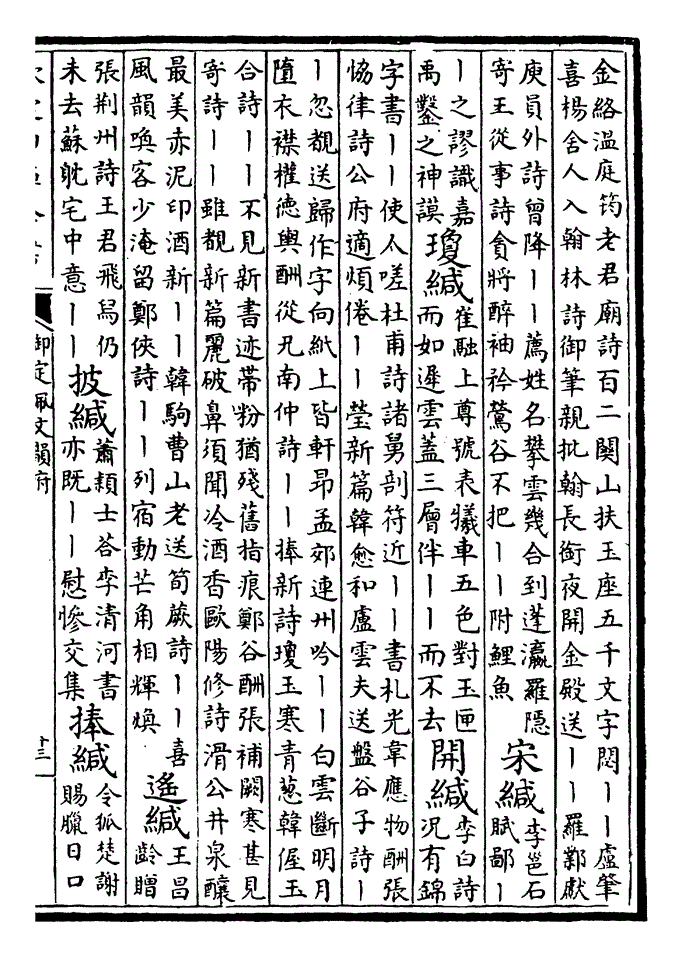 金絡溫庭筠老君廟詩百二關山扶玉座五千文字閟丨丨盧肇
喜楊舍人入翰林詩御筆親批翰長銜夜開金殿送丨丨羅鄴獻
庾員外詩曾降丨丨薦姓名攀雲幾合到蓬瀛羅隱
寄王從事詩貪將醉袖衿鶯谷不把丨丨附鯉魚
宋緘
李邕石
賦鄙丨
丨之謬識嘉
禹鑿之神謨
瓊緘
崔融上尊號表犧車五色對玉匣
而如遲雲蓋三層伴丨丨而不去
開緘
李白詩
況有錦
字書丨丨使人嗟杜甫詩諸舅剖符近丨丨書札光韋應物酬張
協律詩公府適煩倦丨丨瑩新篇韓愈和盧雲夫送盤谷子詩丨
丨忽覩送歸作字向紙上皆軒昂孟郊連州吟丨丨白雲斷明月
墮衣襟權德輿酬從兄南仲詩丨丨捧新詩瓊玉寒青葱韓偓玉
合詩丨丨不見新書迹帶粉猶殘舊指痕鄭谷酬張補闕寒甚見
寄詩丨丨雖覩新篇麗破鼻須聞冷酒香歐陽修詩滑公井泉釀
最美赤泥印酒新丨丨韓駒曹山老送筍蕨詩丨丨喜
風韻喚客少淹留鄭俠詩丨丨列宿動芒角相輝煥
遙緘
王昌
齡贈
張荆州詩王君飛舄仍
未去蘇躭宅中意丨丨
披緘
蕭頴士荅李清河書
亦既丨丨慰慘交集
捧緘
令狐楚謝
賜臘日口
御定佩文韻府
十三